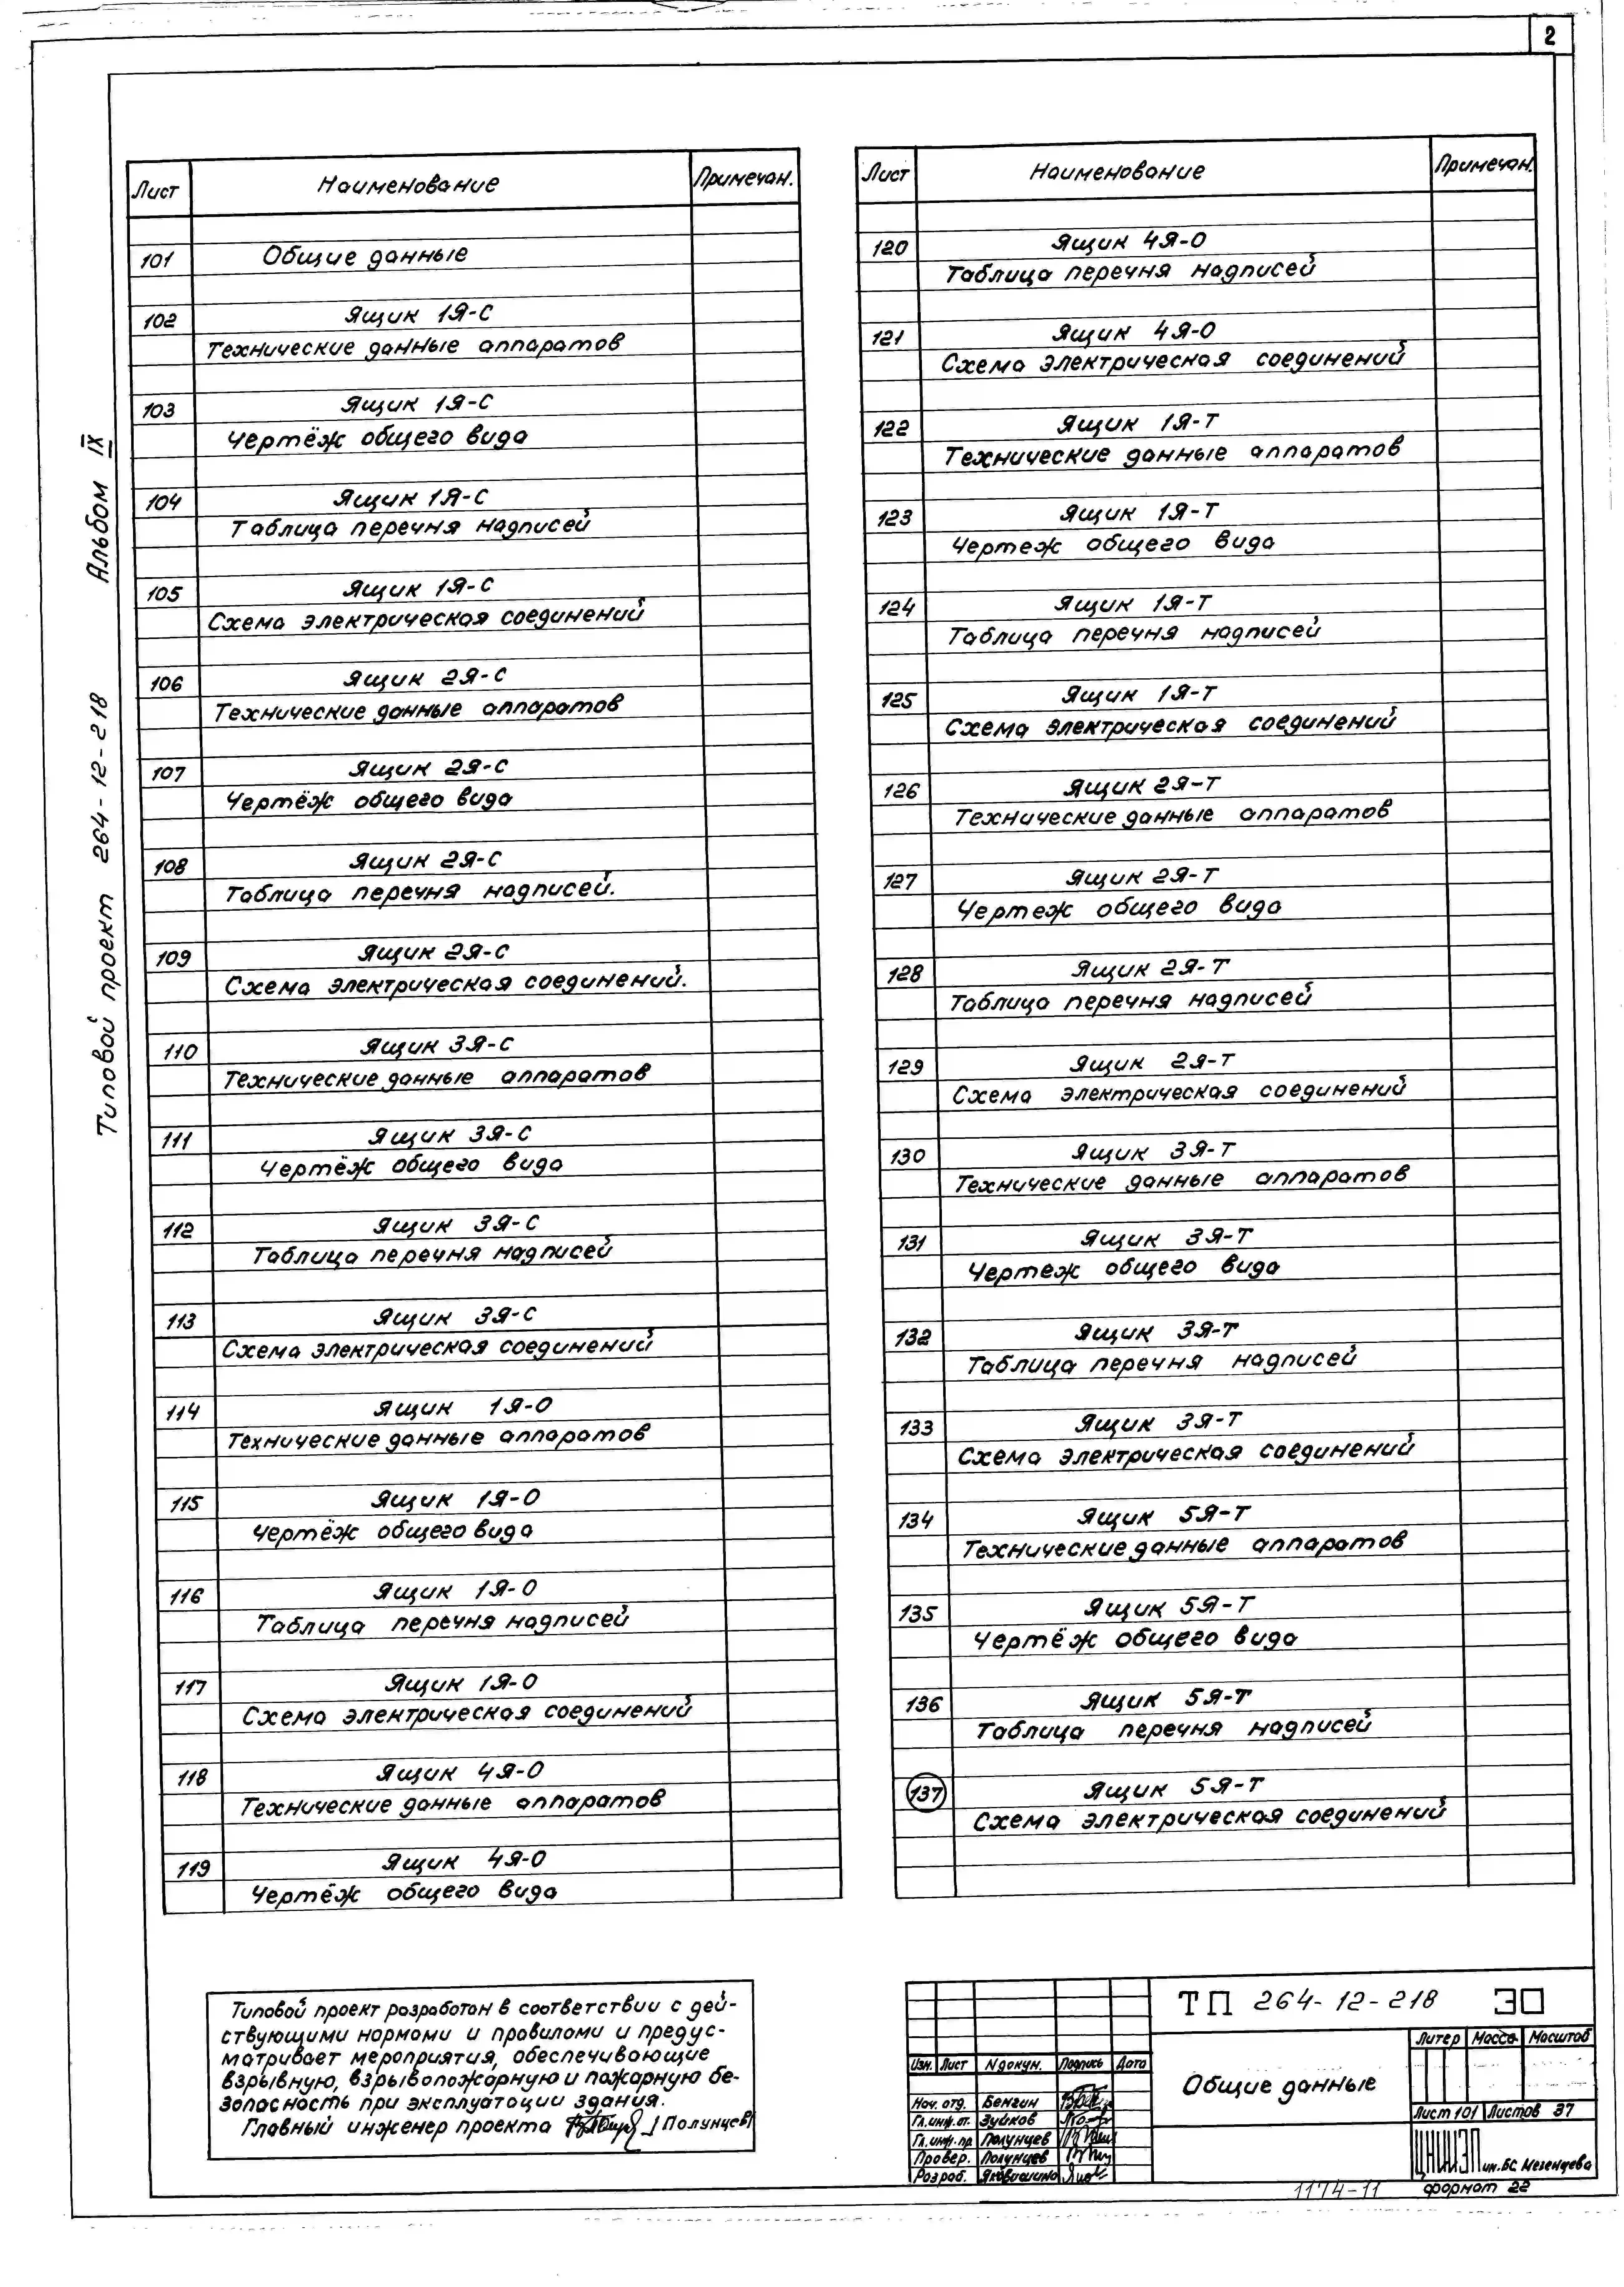 2
Типовой проект 264-12-218 Альбом IX
Лист Наименование Примечан.
101 Общие данные
102 Ящик 1Я-С
Технические данные аппаратов
103 Ящик 1Я-С
Чертёж общего вида
104 Ящик 1Я-С
Таблица перечня надписей
105 Ящик 1Я-С
Схема электрическая соединений
106 Ящик 2Я-С
Технические данные аппаратов
107 Ящик 2Я-С
Чертёж общего вида
108 Ящик 2Я-С
Таблица перечня надписей.
109 Ящик 2Я-С
Схема электрическая соединений.
110 Ящик 3Я-С
Технические данные аппаратов
111 Ящик 3Я-С
Чертёж общего вида
112 Ящик 3Я-С
Таблица перечня надписей
113 Ящик 3Я-С
Схема электрическая соединений
114 Ящик 1Я-О
Технические данные аппаратов
115 Ящик 1Я-О
Чертёж общего вида
116 Ящик 1Я-О
Таблица перечня надписей
117 Ящик 1Я-О
Схема электрическая соединений
118 Ящик 4Я-О
Технические данные аппаратов
119 Ящик 4Я-О
Чертёж общего вида
Лист Наименование Примечан.
120 Ящик 4Я-О
Таблица перечня надписей
121 Ящик 4Я-О
Схема электрическая соединений
122 Ящик 1Я-Т
Технические данные аппаратов
123 Ящик 1Я-Т
Чертеж общего вида
124 Ящик 1Я-Т
Таблица перечня надписей
125 Ящик 1Я-Т
Схема электрическая соединений
126 Ящик 2Я-Т
Технические данные аппаратов
127 Ящик 2Я-Т
Чертеж общего вида
128 Ящик 2Я-Т
Таблица перечня надписей
129 Ящик 2Я-Т
Схема электрическая соединений
130 Ящик 3Я-Т
Технические данные аппаратов
131 Ящик 3Я-Т
Чертеж общего вида
132 Ящик 3Я-Т
Таблица перечня надписей
133 Ящик 3Я-Т
Схема электрическая соединений
134 Ящик 5Я-Т
Технические данные аппаратов
135 Ящик 5Я-Т
Чертёж общего вида
136 Ящик 5Я-Т
Таблица перечня надписей
137 Ящик 5Я-Т
Схема электрическая соединений
Типовой проект разработан в соответствии с дей-
ствующими нормами и правилами и предус-
матривает мероприятия, обеспечивающие
взрывную, взрывопожарную и пожарную бе-
зопасность при эксплуатации здания.
Главный инженер проекта /Полунцев/
ТП 264-12-218 ЭО
Изм. Лист N докум. Подпись Дата
Нач. отд. Бенгин
Гл.инж.от. Зуйков
Гл.инж.пр. Полунцев
Провер. Полунцев
Разраб.
Общие данные
Литер Масса Масштаб
Лист 101 Листов 37
ЦНИИЭП им. Б.С. Мезенцева
1174-11 формат 22